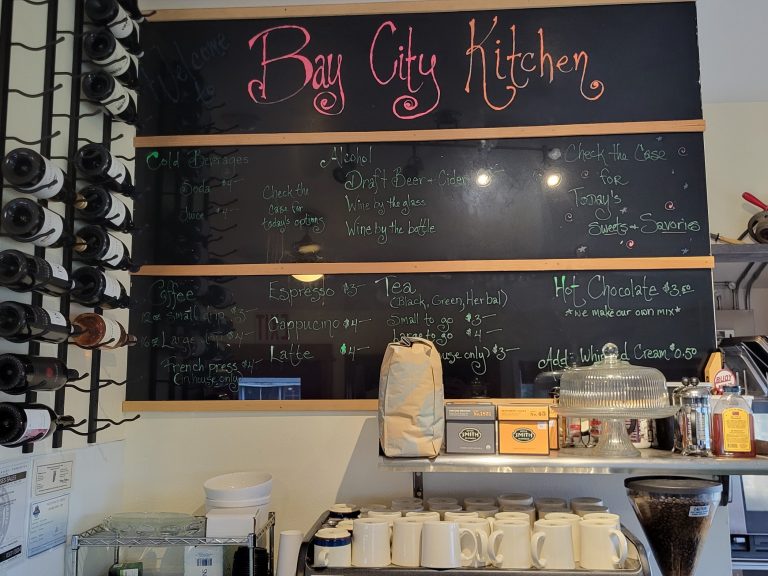 Welcome to
Bay City Kitchen
Cold Beverages
Soda $4-
Juice $4-
Check the
case for
today's options
Alcohol
Draft Beer + Cider
Wine by the glass
Wine by the bottle
Check the Case
for
Today's
Sweets + Savories
Coffee
12 oz small drip $3-
16 oz Large
French press $4-
(in house only)
Espresso $3-
Cappucino $4-
Latte $4-
Tea
(Black, Green, Herbal)
Small to go $3-
Large to go $4-
house only) $3-
Hot Chocolate $3.50
*We make our own mix*
Add Whipped Cream $0.50
SMITH
SMITH
CAUTION